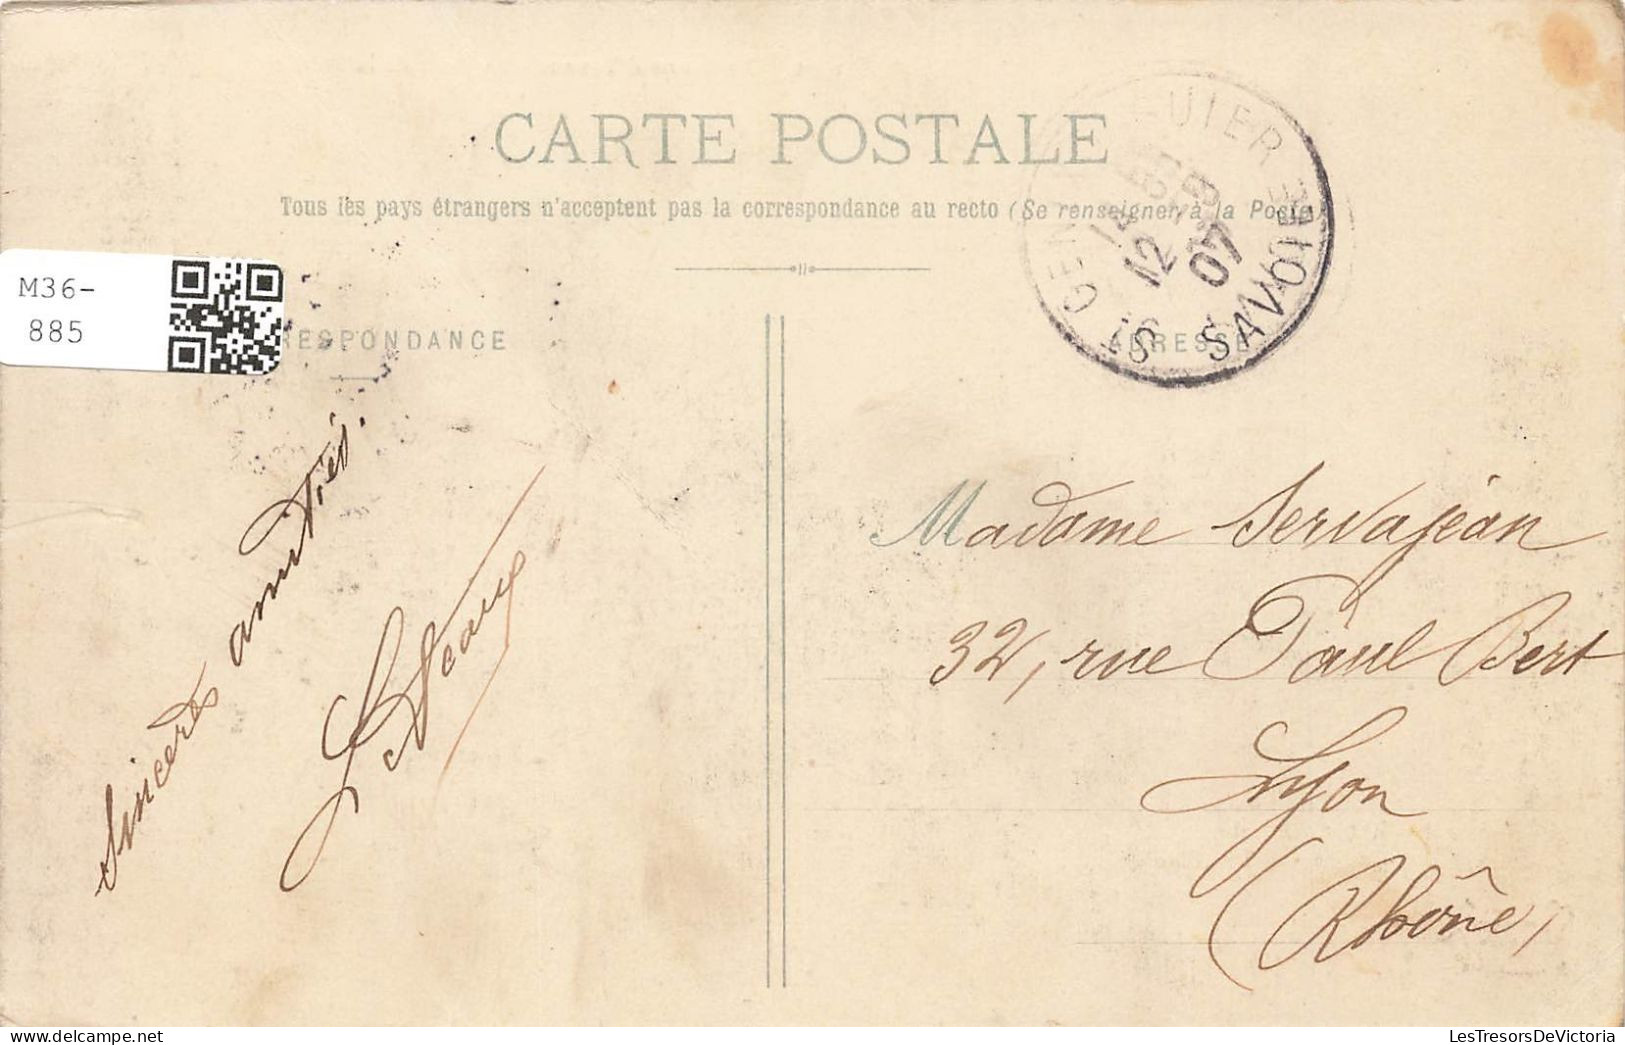 CARTE POSTALE
Tous les pays étrangers n'acceptent pas la correspondance au recto (Se renseigner à la Poste)
M36-
885
RESPONDANCE
ADRESSE
12
07
SAVOIE
Sincères amitiés.
Madame Servajean
32, rue Paul Bert
Lyon
(Rhône)
LesTresorsDeVictoria